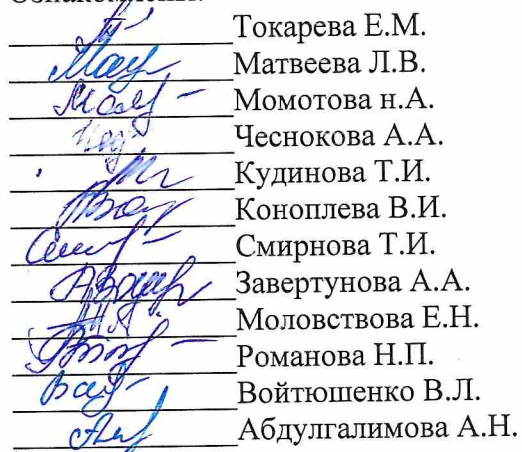 Токарева Е.М.
Матвеева Л.В.
Момотова н.А.
Чеснокова А.А.
Кудинова Т.И.
Коноплева В.И.
Смирнова Т.И.
Завертунова А.А.
Моловствова Е.Н.
Романова Н.П.
Войтюшенко В.Л.
Абдулгалимова А.Н.